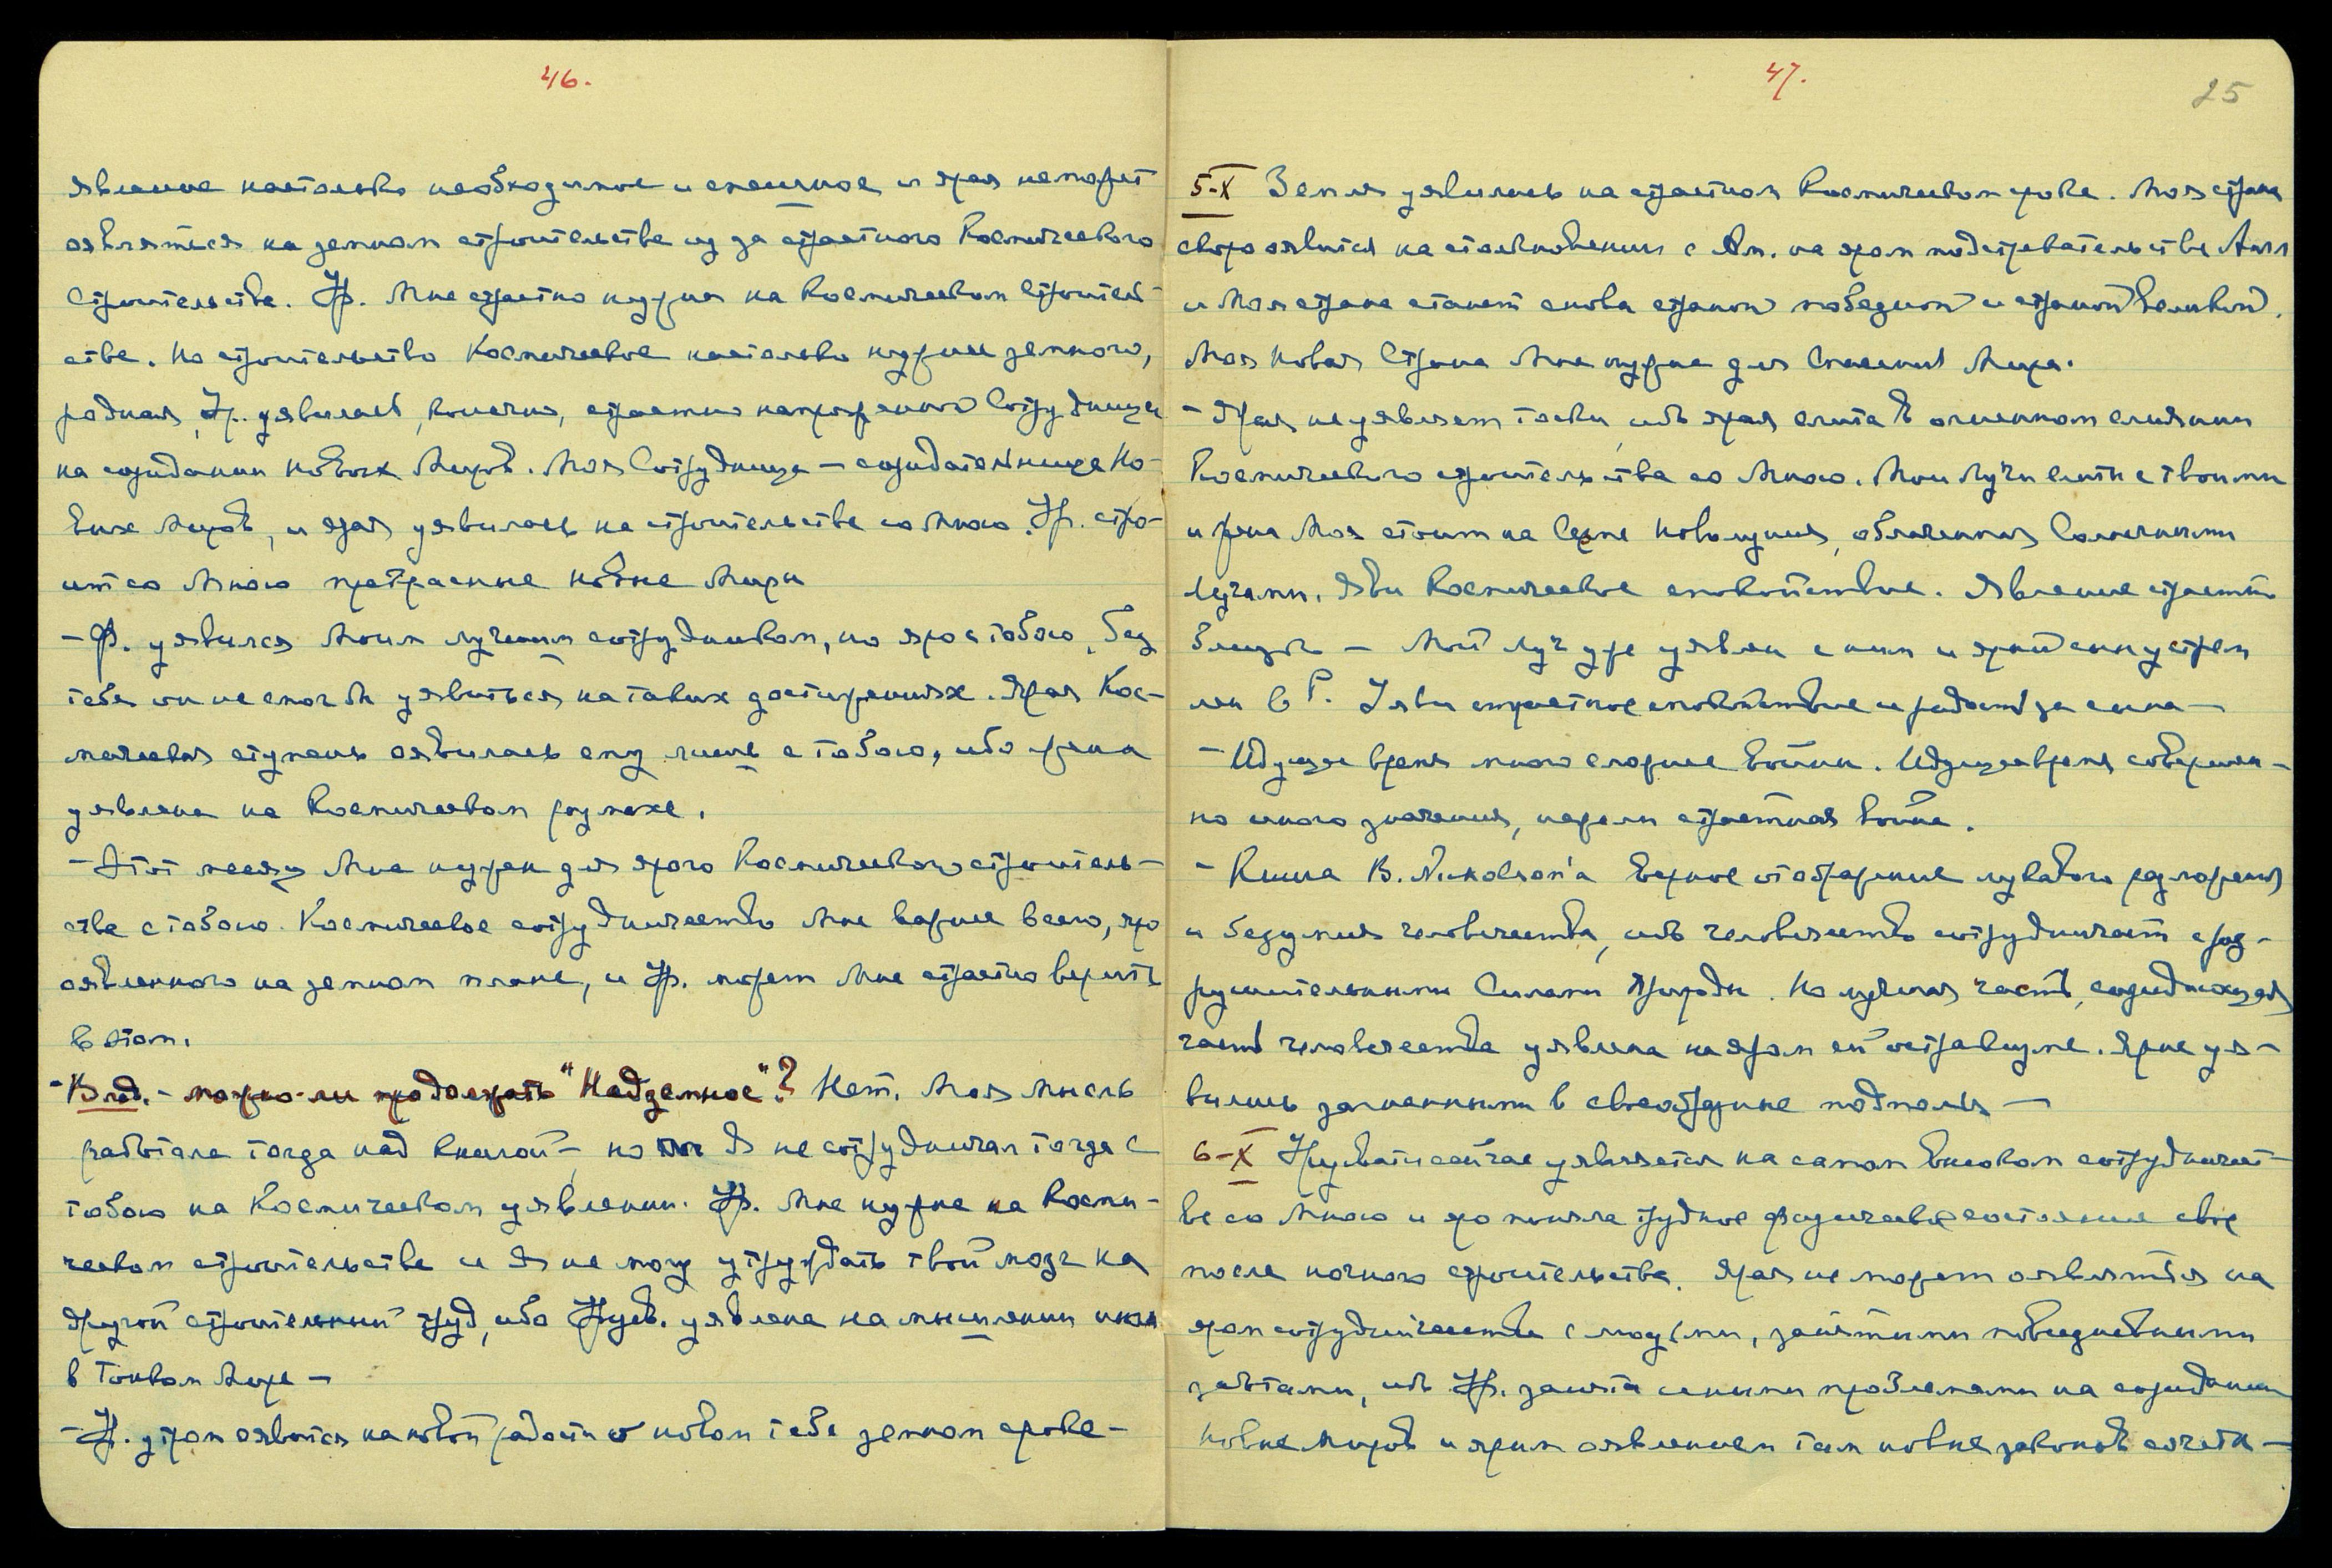 46.
явление настолько необходимое и спешное и ярая не может
оявляться на земном строительстве из за страстного Космического
Строительства. Ур. Мне страстно нужна на Космическом Строитель-
стве. Но строительство Космическое настолько нужнее земного,
родная, Ур. уявилась, конечно, страстно напряженной Сотрудницей
на созидании новых Миров. Моя Сотрудница — созидательница Но-
вых Миров, и ярая уявилась на строительстве со Мною. Ур. стро-
ит со Мною прекрасные новые Миры
— Ф. уявился Моим лучшим сотрудником, но яро с тобою, без
тебя он не смог бы уявиться на таких достижениях. Ярая Кос-
мическая ступень оявилась ему лишь с тобою, ибо жена
уявлена на Космическом размахе.
— Этот месяц Мне нужен для ярого Космического строитель-
ства с тобою. Космическое сотрудничество Мне важнее всего, яро
оявленного на земном плане, и Ур. может Мне страстно верить
в этом.
- Влад. - можно-ли продолжать "Надземное"? Нет. Моя мысль
работала тогда над Книгой — но Я не сотрудничал тогда с
тобою на Космическом уявлении. Ур. Мне нужна на Косми-
ческом строительстве и Я не могу утруждать твой мозг на
другой строительный труд, ибо Урув. уявлена на мышлении ином
в Тонком Мире —
- Ур. утром оявится на новой радости о новом тебе земном сроке —
47.
25
5-X Земля уявилась на страстном Космическом сроке. Моя страна
скоро оявится на столкновении с Ам. на яром подстрекательстве Англ
и Моя страна станет снова страной победной и страной Великой.
Моя Новая Страна Мне нужна для Спасения Мира.
- Ярая не уявляет тоски, ибо ярая слита в огненном слиянии
Космического строительства со Мною. Мои Лучи слиты с твоими
и жена Моя стоит на Серпе Новолуния, облаченная Солнечными
Лучами. Яви Космическое спокойствие. Явление страстно
близко — Мой Луч уже уявлен с ним и ярый сын устрем
лен в Г. Уяви страстное спокойствие и радость за сына —
- Идущее время много сложнее войны. Идущее время совершен-
но иного значения, нежели страстная война.
- Книга B. Nickolson'а верное отображение лукавого разложения
и безумия человечества, ибо человечество сотрудничает с раз-
рушительными Силами Природы. Но лучшая часть, созидающая
часть человечества уявлена на яром ей остракизме. Ярые уя-
вились загнанными в своеобразные подполья —
6-X Урувати сейчас уявляется на самом высоком сотрудничест-
ве со Мною и яро поняла трудное физическое состояние свое
после ночного строительства. Ярая не может оявляться на
яром сотрудничестве с людьми, занятыми повседневными
заботами, ибо Ур. занята иными проблемами на созидании
новых Миров и ярым оявлением там новых законов сочета-